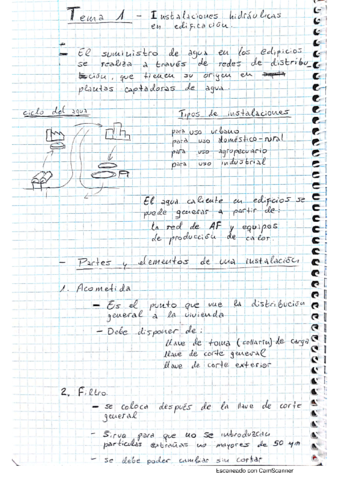 Tema 1 - Instalaciones hidráulicas
en edificación
- El suministro de agua en los edificios
se realiza a través de redes de distribu_
ción, que tienen su origen en
plantas captadoras de agua.
ciclo del agua
Tipos de instalaciones
para uso urbano
para uso doméstico-rural
para uso agropecuario
para uso industrial
El agua caliente en edificios se
puede generar a partir de:
la red de AF y equipos
de producción de calor
- Partes y elementos de una instalación
1. Acometida
- Es el punto que une la distribución
general a la vivienda
- Debe disponer de:
llave de toma (collarín) de carga
llave de corte general
llave de corte exterior
2. Filtro
- se coloca después de la llave de corte
general
- Sirve para que no se introduzcan
partículas extrañas no mayores de 50 µm
- se debe poder cambiar sin cortar
Escaneado con CamScanner